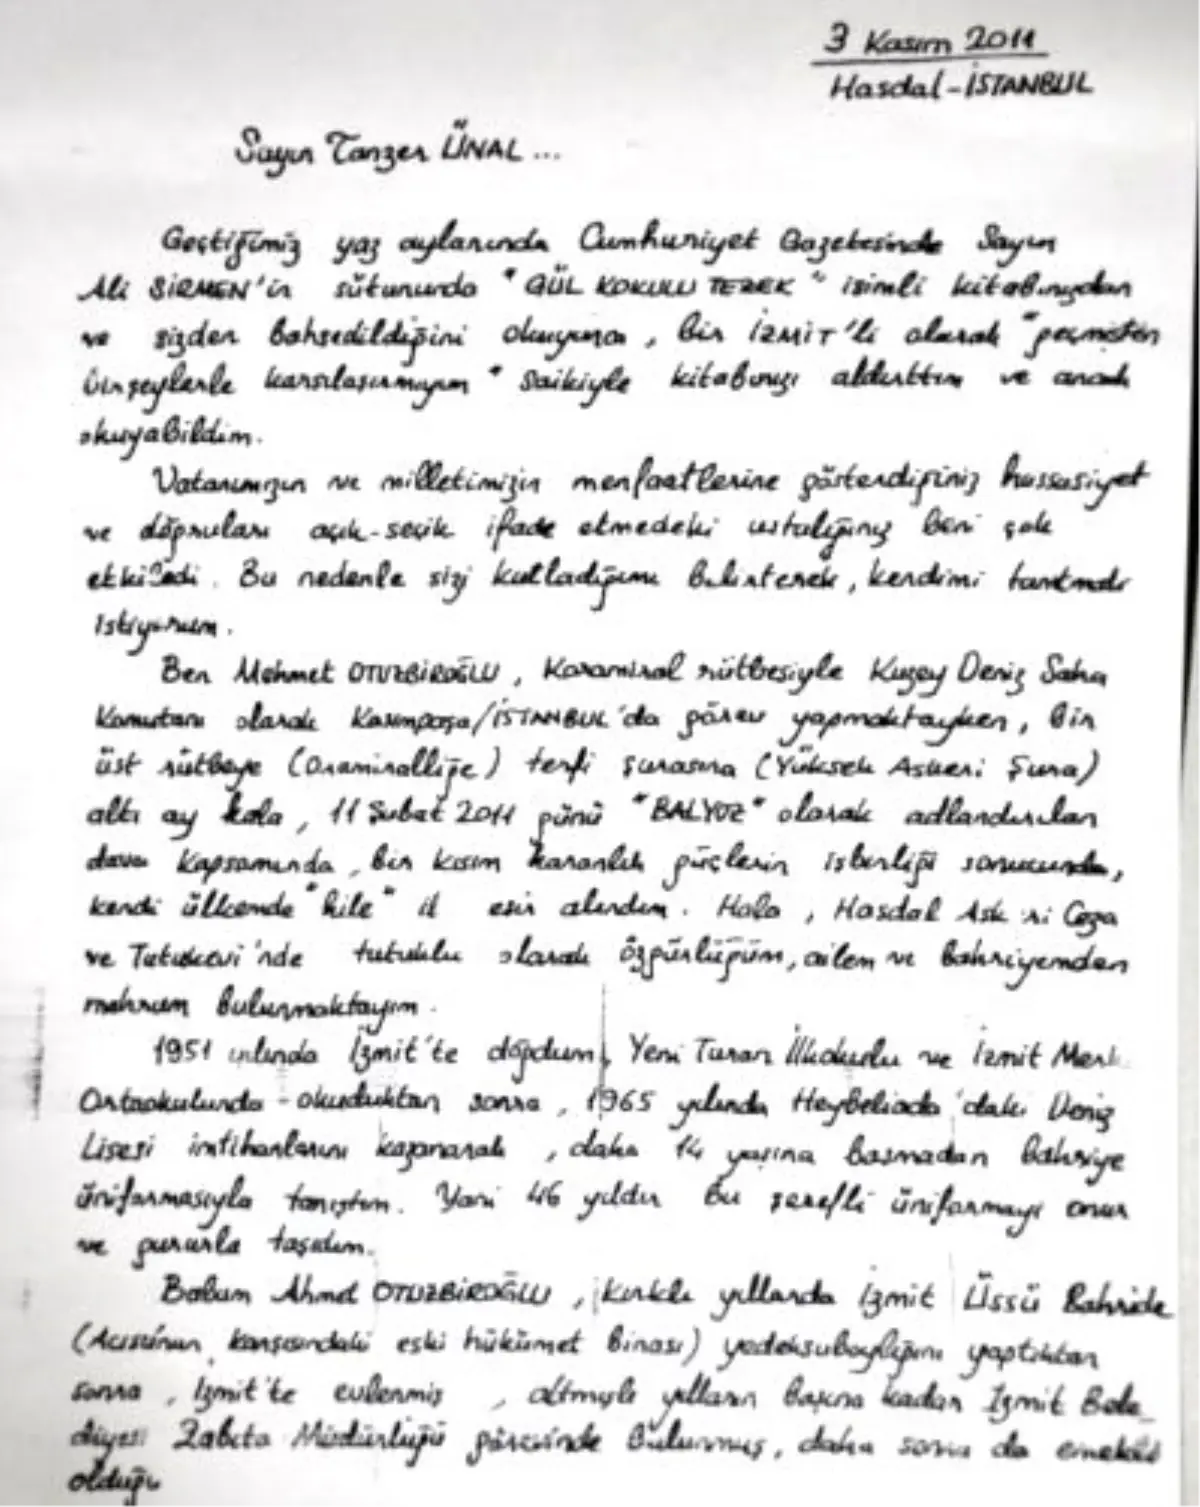 3 Kasım 2011
Hasdal-İSTANBUL
Sayın Tanzer ÜNAL...
Geçtiğimiz yaz aylarında Cumhuriyet Gazetesinde Sayın
Ali SİRMEN'in sütununda "GÜL KOKULU TEZEK" isimli kitabınızdan
ve sizden bahsedildiğini okuyunca, bir İZMİT'li olarak "geçmişten
birşeylerle karşılaşırmıyım" saikiyle kitabınızı aldırttım ve ancak
okuyabildim.
Vatanımızın ve milletimizin menfaatlerine gösterdiğiniz hassasiyet
ve doğruları açık-seçik ifade etmedeki ustalığınız beni çok
etkiledi. Bu nedenle sizi kutladığımı belirterek, kendimi tanıtmak
istiyorum.
Ben Mehmet OTUZBİROĞLU, Koramiral rütbesiyle Kuzey Deniz Saha
Komutanı olarak Kasımpaşa/İSTANBUL'da görev yapmaktayken, bir
üst rütbeye (Oramiralliğe) terfi şurasına (Yüksek Askeri Şura)
altı ay kala, 11 Şubat 2011 günü "BALYOZ" olarak adlandırılan
dava kapsamında, bir kısım karanlık güçlerin işbirliği sonucunda,
kendi ülkemde "hile" il esir alındım. Hala, Hasdal Ask ri Ceza
ve Tutukevi'nde tutuklu olarak özgürlüğüm, ailem ve bahriyemden
mahrum bulunmaktayım.
1951 yılında İzmit'te doğdum, Yeni Turan İlkokulu ve İzmit Merk
Ortaokulunda okuduktan sonra, 1965 yılında Heybeliada'daki Deniz
Lisesi imtihanlarını kazanarak, daha 14 yaşına basmadan bahriye
üniformasıyla tanıştım. Yani 46 yıldır bu şerefli üniformayı onur
ve gururla taşıdım.
Babam Ahmet OTUZBİROĞLU, kırklı yıllarda İzmit Üssü Bahride
(Acısu'nun karşısındaki eski hükümet binası) yedeksubaylığını yaptıktan
sonra, İzmit'te evlenmiş, altmışlı yılların başına kadar İzmit Bele_
diyesi Zabıta Müdürlüğü görevinde bulunmuş, daha sonra da emekli
olduğu